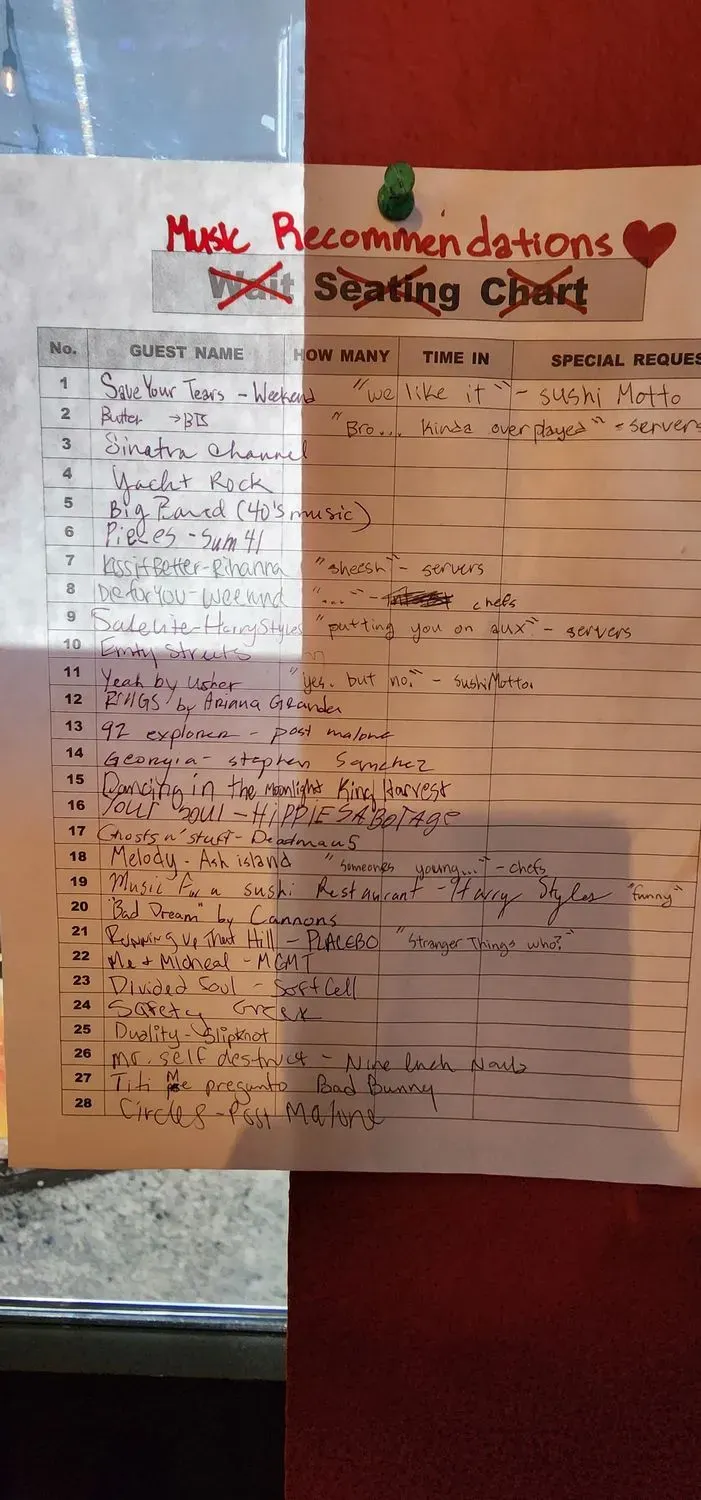 Music Recommendations
Wait Seating Chart
No. GUEST NAME HOW MANY TIME IN SPECIAL REQUES
1 Save Your Tears - Weekend "we like it" - sushi Motto
2 Butter → BTS "Bro... kinda overplayed" - servers
3 Sinatra channel
4 Yacht Rock
5 Big Band (40's music)
6 Pieces - Sum 41
7 Kiss it Better - Rihanna "sheesh" - servers
8 Die for You - Weeknd "..." - chefs
9 Satelite - Harry Styles "putting you on aux" - servers
10 Emty Streets
11 Yeah by Usher "yes. but no." - sushi Motto.
12 RINGS by Ariana Grande
13 92 explorer - post malone
14 Georgia - stephen Sanchez
15 Dancing in the Moonlight King Harvest
16 YOUR SOUL - HiPPIE SABOTAGE
17 Ghosts n' stuff - Deadmau5
18 Melody - Ash island "someones young..." - chefs
19 Music For a sushi Restaurant - Harry Styles "funny"
20 "Bad Dream" by Cannons
21 Running Up That Hill - PLACEBO "Stranger Things who?"
22 Me + Micheal - MGMT
23 Divided Soul - Soft Cell
24 Safety
25 Duality - Slipknot
26 mr. self destruct - Nine Inch Nails
27 Titi Me pregunto Bad Bunny
28 Circles - Post Malone